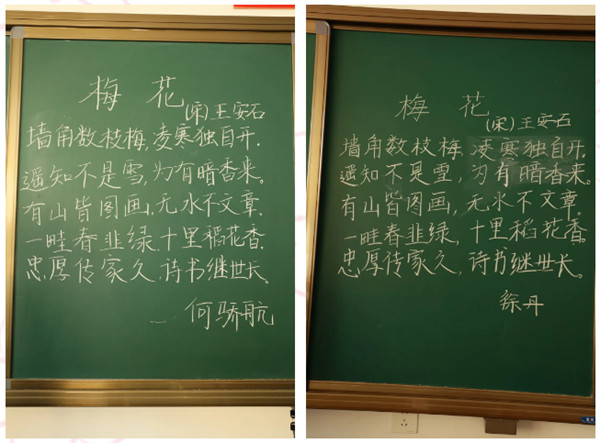 梅 花
(宋)王安石
墙角数枝梅,凌寒独自开.
遥知不是雪,为有暗香来。
有山皆图画,无水不文章.
一畦春韭绿,十里稻花香.
忠厚传家久,诗书继世长。
何骄航
梅 花
(宋)王安石
墙角数枝梅,凌寒独自开.
遥知不是雪,为有暗香来。
有山皆图画,无水不文章.
一畦春韭绿,十里稻花香。
忠厚传家久,诗书继世长。
徐丹